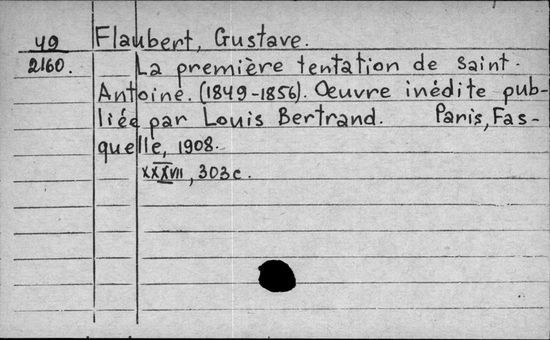 49 Flaubert, Gustave.
2160. La première tentation de Saint-
Antoine. (1849-1856). Œuvre inédite pub-
liée par Louis Bertrand. Paris, Fas-
quelle, 1908.
XXXVII, 303c.